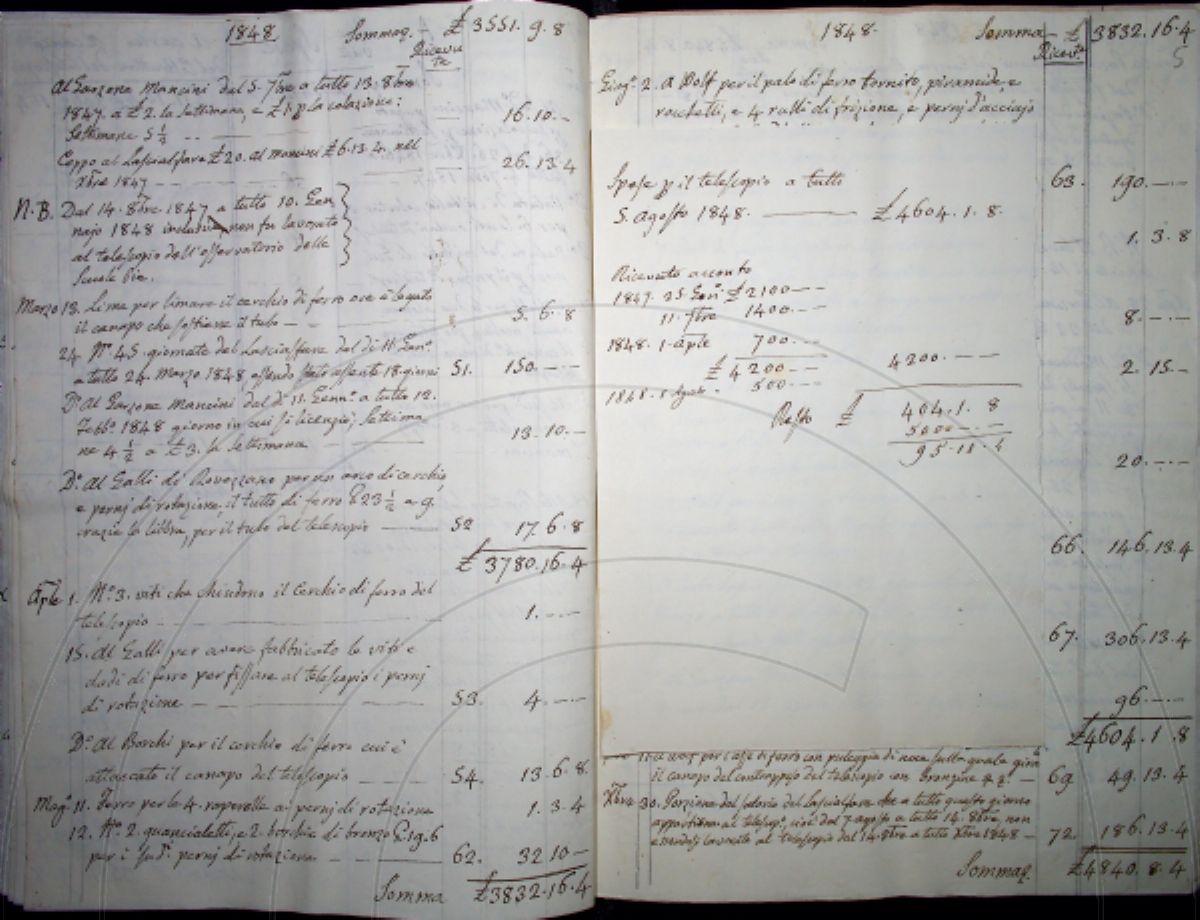 1848. Sommaq. £ 3551. 9. 8
Ricevute
Al Garzone Mancini dal 5. 7bre a tutto 13. 8bre
1847. a £ 2. la settimana, e £ 1 p la colazione:
Settimane 5 1/2 16. 10. -
Ceppo al Lasciaspare £ 20. al Mancini £ 6. 13. 4. nel
Xbre 1847 26. 13. 4
N.B. Dal 14. 8bre. 1847 a tutto 10. Gen
najo 1848 non fu lavorato
al telescopio dell'osservatorio delle
Scuole Pie.
Marzo 18. Lima per limare il cerchio di ferro ove è legato
il canapo che sostiene il tubo 5. 6. 8
24. N.º 45. giornate del Lasciaspare dal dì 11. Genº.
a tutto 24. Marzo 1848 essendo stato assente 18 giorni 51. 150. - -
Dº. Al Garzone Mancini dal dì 11. Gennº. a tutto 12.
Febbº. 1848 giorno in cui si licenziò, settima
ne 4 1/2 a £ 3. la settimana 13. 10. -
Dº. Al Galli di Rovezzano per un arco di cerchio
e pernj di rotazione, il tutto di ferro £ 23 1/2 a 9.
crazie la libbra, per il tubo del telescopio 52 17. 6. 8
£ 3780. 16. 4
Aple 1. Nº. 3. viti che chiudono il cerchio di ferro del
telescopio 1. - -
15. Al Galli per avere fabbricato le viti e
dadi di ferro per fissare al telescopio i pernj
di rotazione 53. 4. - -
Dº. Al Borchi per il cerchio di ferro cui è
attaccato il canapo del telescopio 54. 13. 6. 8.
Magº. 11. Ferro per le 4. raperelle ai pernj di rotazione 1. 3. 4
12. Nº. 2. guancialetti, e 2. borchie di bronzo
per i sudi. pernj di rotazione 62. 32 10 -
Somma £ 3832. 16. 4
1848. Somma £ 3832. 16. 4
Ricevte. 5
Giugº. 2. A Wolf per il palo di ferro tornito, piramide, e
rocchetti, e 4 rulli di frizione, e pernj d'acciajo
63. 190. - -
Spese p il telescopio a tutto
5. agosto 1848. £ 4604. 1. 8.
1. 3. 8
Ricevuto acconto
1847. 25. Genº. £ 2100 - -
11. 7bre 1400. - -
8. - -
1848. 1. aple 700. - -
£ 4200 - - 4200. - -
2. 15 -
1848. 5 Agosto 500. - -
Resto £ 404. 1. 8
500 - -
95. 18. 4
20. - -
66. 146. 13. 4
67. 306. 13. 4
96. - -
£ 4604. 1. 8
per l'asse di ferro con puleggia di noce sulla quale gira
il canapo del contrappeso del telescopio con bronzine 69 49. 13. 4
Xbre 30. Porzione del salario del Lasciaspare che a tutto questo giorno
appartiene al telescopº. cioè dal 7. agosto a tutto 14. 8bre, non
avendo lavorato al telescopio dal 14. 8bre a tutto Xbre 1848 72. 186. 13. 4
Sommaq. £ 4840. 8. 4